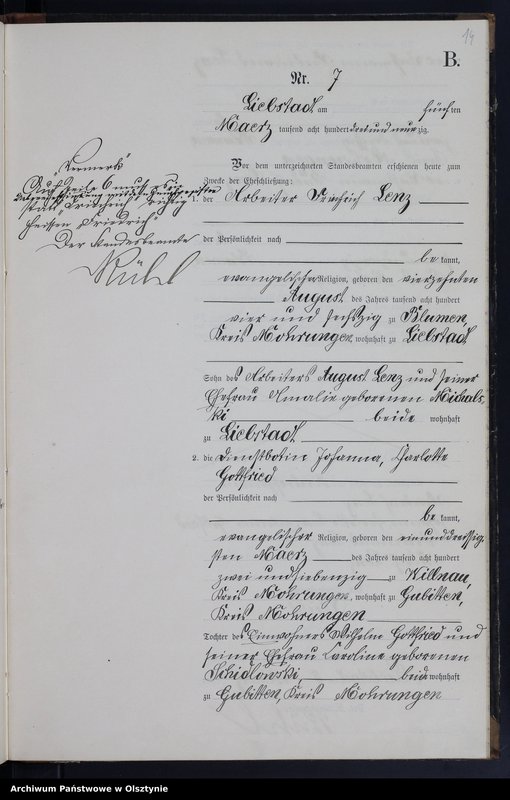 14
B.
Nr. 7
Liebstadt am fünften
Maerz tausend acht hundert drei und neunzig.
Vor dem unterzeichneten Standesbeamten erschienen heute zum
Zwecke der Eheschließung:
1. der Arbeiter Lenz
der Persönlichkeit nach
bekannt,
evangelischer Religion, geboren den vierzehnten
August des Jahres tausend acht hundert
vier und sechszig zu Blumen,
Kreis Mohrungen, wohnhaft zu Liebstadt
Sohn des Arbeiters August Lenz und seiner
Ehefrau Amalie geborenen Michals
ki beide wohnhaft
zu Liebstadt.
2. die Dienstbotin Johanna, Charlotte
Gottfried
der Persönlichkeit nach
bekannt,
evangelischer Religion, geboren den einunddreissig
sten Maerz des Jahres tausend acht hundert
zwei und siebenzig zu Willnau,
Kreis Mohrungen, wohnhaft zu Gubitten,
Kreis Mohrungen
Tochter des Einwohners Wilhelm Gottfried und
seiner Ehefrau Caroline geborenen
Schidlowski, beide wohnhaft
zu Gubitten, Kreis Mohrungen
"Vermerk"
Auf Seite 6 muß es
statt "Friedrich" richtig
heissen "Friedrich"
Der Standesbeamte
Rühl
Archiwum Państwowe w Olsztynie